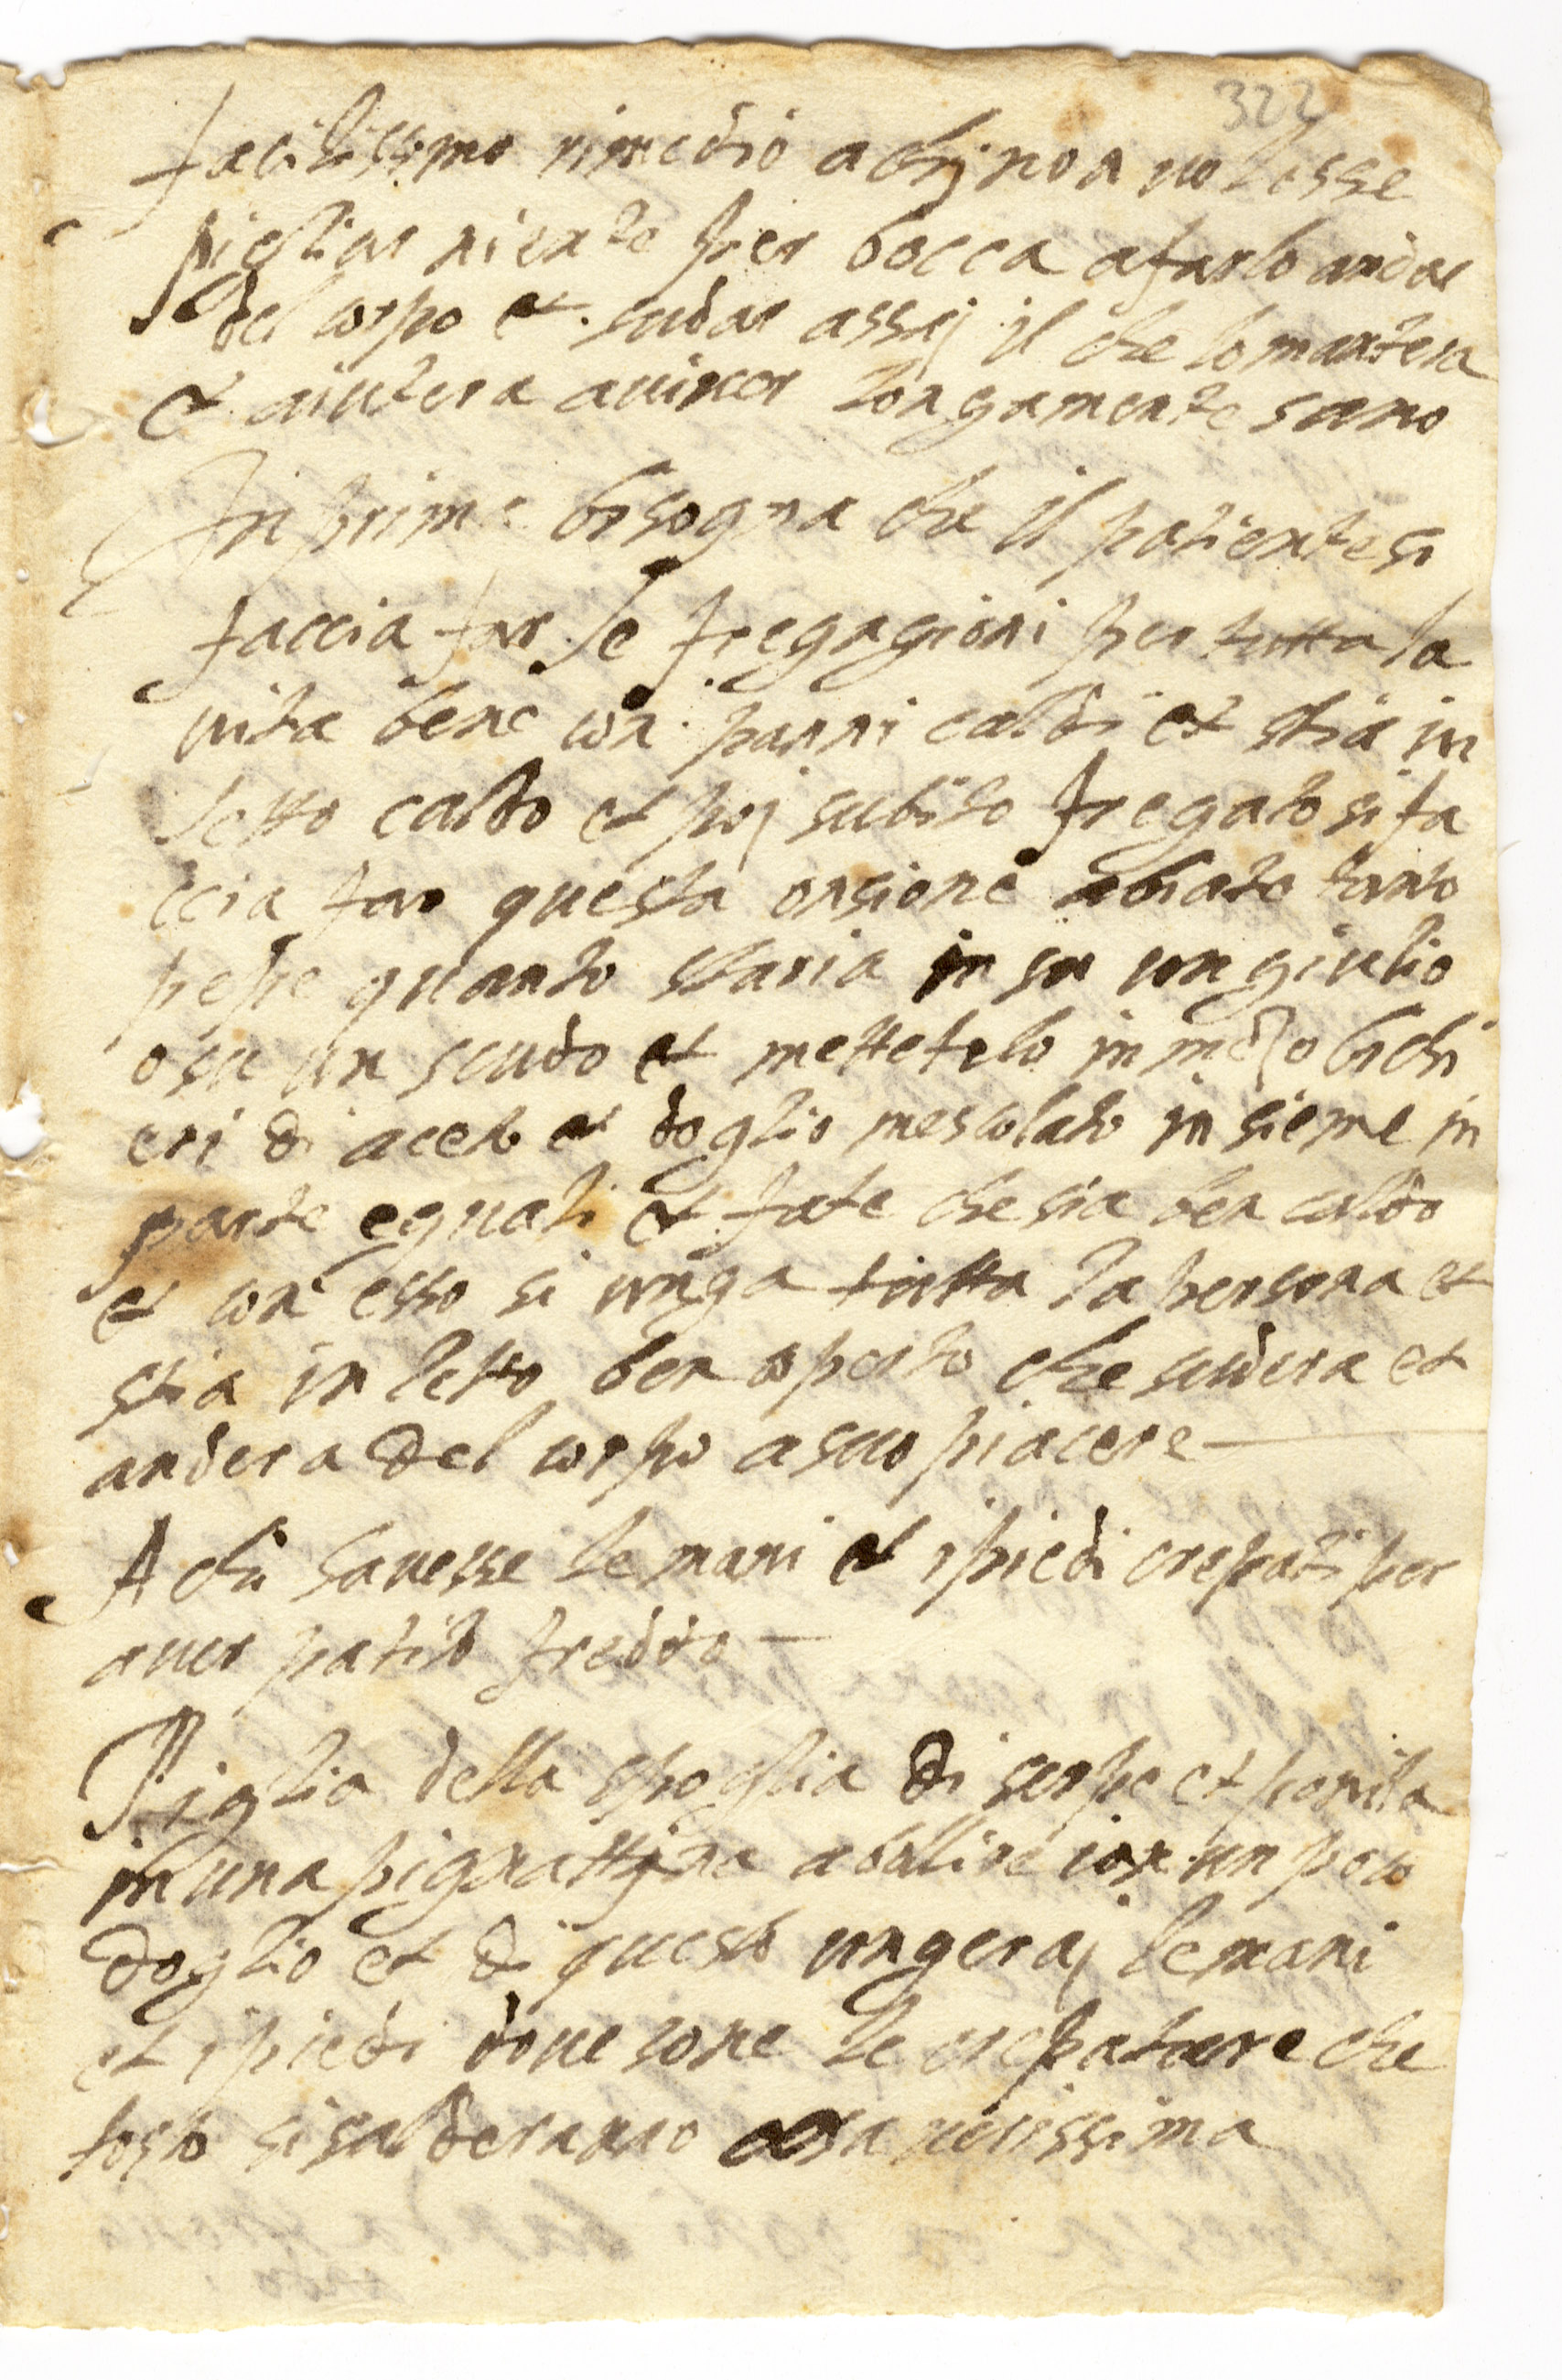 322
facilissimo rimedio a chj non uolesse
pigliar niente per bocca a farlo andar
del corpo et sudar assaj il che lo mantera
et aiutera a uiuer longamente sano
In prima bisogna che il patiente si
faccia far le fregagioni per tutta la
uita bene con panni caldi et stia in
letto caldo et poj subito fregato si fa
ccia far questa onsione abiate tanto
pepe quanto staria in su un giulio
o su un scudo et mettetelo in mezo bichi
eri di aceto et doglio mescolato insieme in
parte eguali et fate che sia ben caldo
et con esso si unga tutta la persona et
stia in letto ben coperto che sudera et
andera del corpo a suo piacere
A chi hauesse le mani et i piedi crepati per
auer patito freddo
Piglia della spoglia di serpe et ponila
in una pignattina a bollire con un poco
doglio et di questo ungeraj le mani
et i piedi doue sone le crepature che
tosto si salderanno cosa uerissima